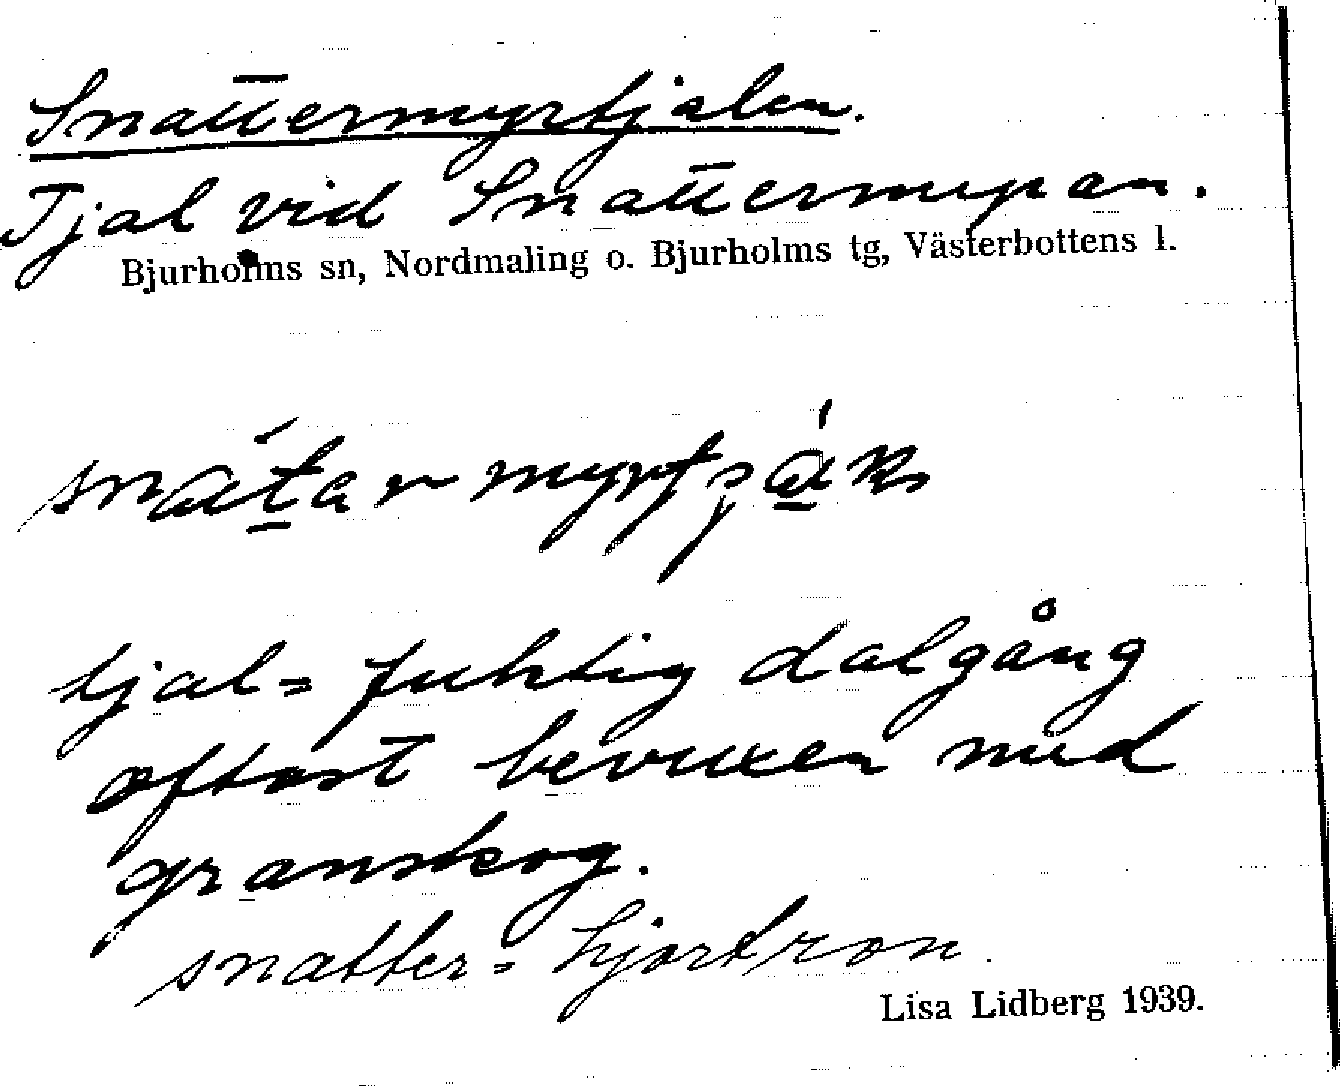 Snattermyrtjalen.
Tjal vid Snattermyran.
Bjurholms sn, Nordmaling o. Bjurholms tg, Västerbottens l.
tjal = fuktig dalgång
oftast bevuxen med
granskog.
snatter = hjortron.
Lisa Lidberg 1939.